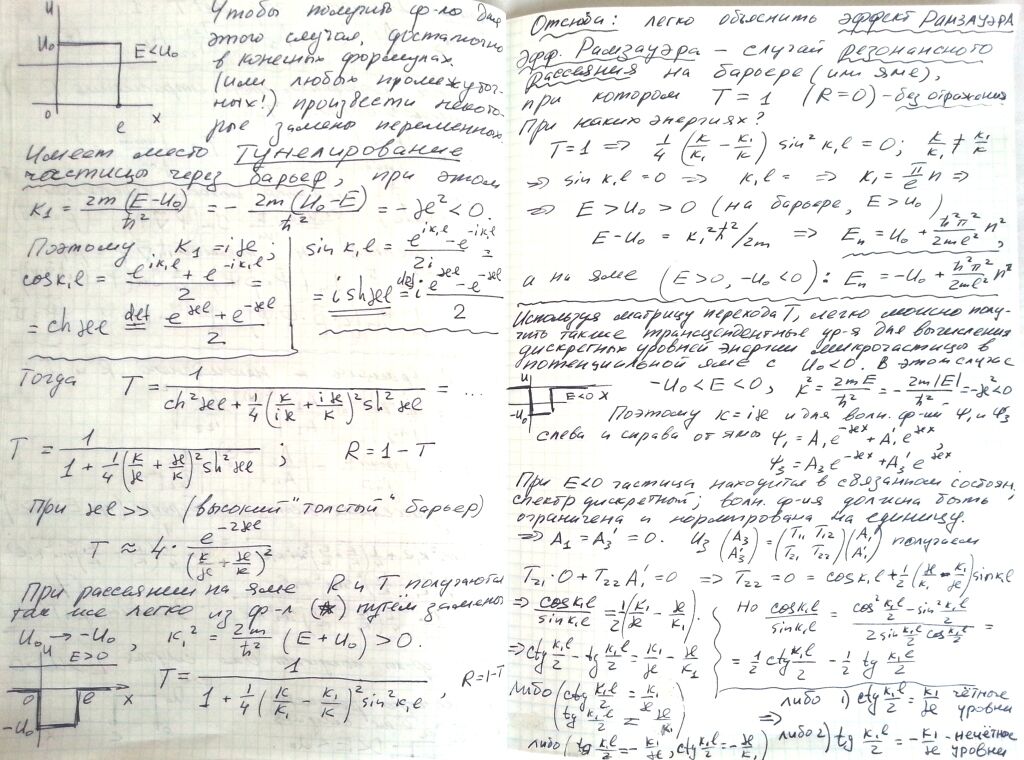 U
U₀
E<U₀
0
l
x
Чтобы получить ф-лы для
этого случая, достаточно
в конечных формулах
(или любых промежуточ-
ных!) произвести некото-
рые замены переменных.
Имеет место Тунелирование
частицы через барьер, при этом
K₁ = 2m(E−U₀)/ħ² = − 2m(U₀−E)/ħ² = −ϰ² < 0.
Поэтому K₁ = iϰ;
cos k₁l = (e^{ik₁l} + e^{−ik₁l})/2 =
= ch ϰl def= (e^{ϰl} + e^{−ϰl})/2
sin k₁l = (e^{ik₁l} − e^{−ik₁l})/2i =
= i sh ϰl def= i (e^{ϰl} − e^{−ϰl})/2
Тогда T = 1/(ch²ϰl + ¼(k/iϰ + iϰ/k)² sh²ϰl) = ...
T = 1/(1 + ¼(k/ϰ + ϰ/k)² sh²ϰl) ; R = 1 − T
При ϰl >> (высокий "толстый" барьер)
T ≈ 4 · e^{−2ϰl}/(k/ϰ + ϰ/k)²
При рассеянии на яме R и T получаются
так же легко из ф-л (*) путём замены
U₀ → −U₀, k₁² = 2m/ħ² (E + U₀) > 0.
U
E>0
0
l
x
−U₀
T = 1/(1 + ¼(k/k₁ − k₁/k)² sin² k₁l) , R = 1−T
Отсюда: легко объяснить эффект Рамзауэра
Эфф. Рамзауэра – случай резонансного
рассеяния на барьере (или яме),
при котором T = 1 (R = 0) – без отражения
При каких энергиях?
T = 1 => ¼ (k/k₁ − k₁/k) sin² k₁l = 0; k/k₁ ≠ k₁/k
=> sin k₁l = 0 => k₁l = => k₁ = π/l n =>
=> E > U₀ > 0 (на барьере, E > U₀)
E − U₀ = k₁²ħ²/2m => Eₙ = U₀ + ħ²π²/2ml² n²,
а на яме (E > 0, −U₀ < 0): Eₙ = −U₀ + ħ²π²/2ml² n²
Используя матрицу перехода T, легко можно полу-
чить также трансцендентные ур-я для вычисления
дискретных уровней энергии микрочастицы в
потенциальной яме с U₀<0. В этом случае
U
E<0 x
−U₀
−U₀ < E < 0, k² = 2mE/ħ² = − 2m|E|/ħ² = −ϰ² < 0
Поэтому k = iϰ и для волн. ф-ий ψ₁ и ψ₃
слева и справа от ямы ψ₁ = A₁e^{−ϰx} + A₁′e^{ϰx},
ψ₃ = A₃e^{−ϰx} + A₃′e^{ϰx}
При E<0 частица находится в связанном состоян.
спектр дискретный; волн. ф-ия должна быть
ограничена и нормирована на единицу.
=> A₁ = A₃′ = 0. Из (A₃ A₃′) = (T₁₁ T₁₂ T₂₁ T₂₂)(A₁ A₁′) получаем
T₂₁·0 + T₂₂A₁′ = 0 => T₂₂ = 0 = cos k₁l + ½(ϰ/k₁ − k₁/ϰ) sin k₁l
=> cos k₁l/sin k₁l = ½(k₁/ϰ − ϰ/k₁).
Но cos k₁l/sin k₁l = (cos² k₁l/2 − sin² k₁l/2)/(2 sin k₁l/2 cos k₁l/2) =
=> ctg k₁l/2 − tg k₁l/2 = k₁/ϰ − ϰ/k₁
= ½ ctg k₁l/2 − ½ tg k₁l/2
либо (ctg k₁l/2 = k₁/ϰ, tg k₁l/2 = ϰ/k₁)
либо (tg k₁l/2 = − k₁/ϰ, ctg k₁l/2 = − ϰ/k₁)
=>
либо 1) ctg k₁l/2 = k₁/ϰ чётные уровни
либо 2) tg k₁l/2 = − k₁/ϰ – нечётные уровни